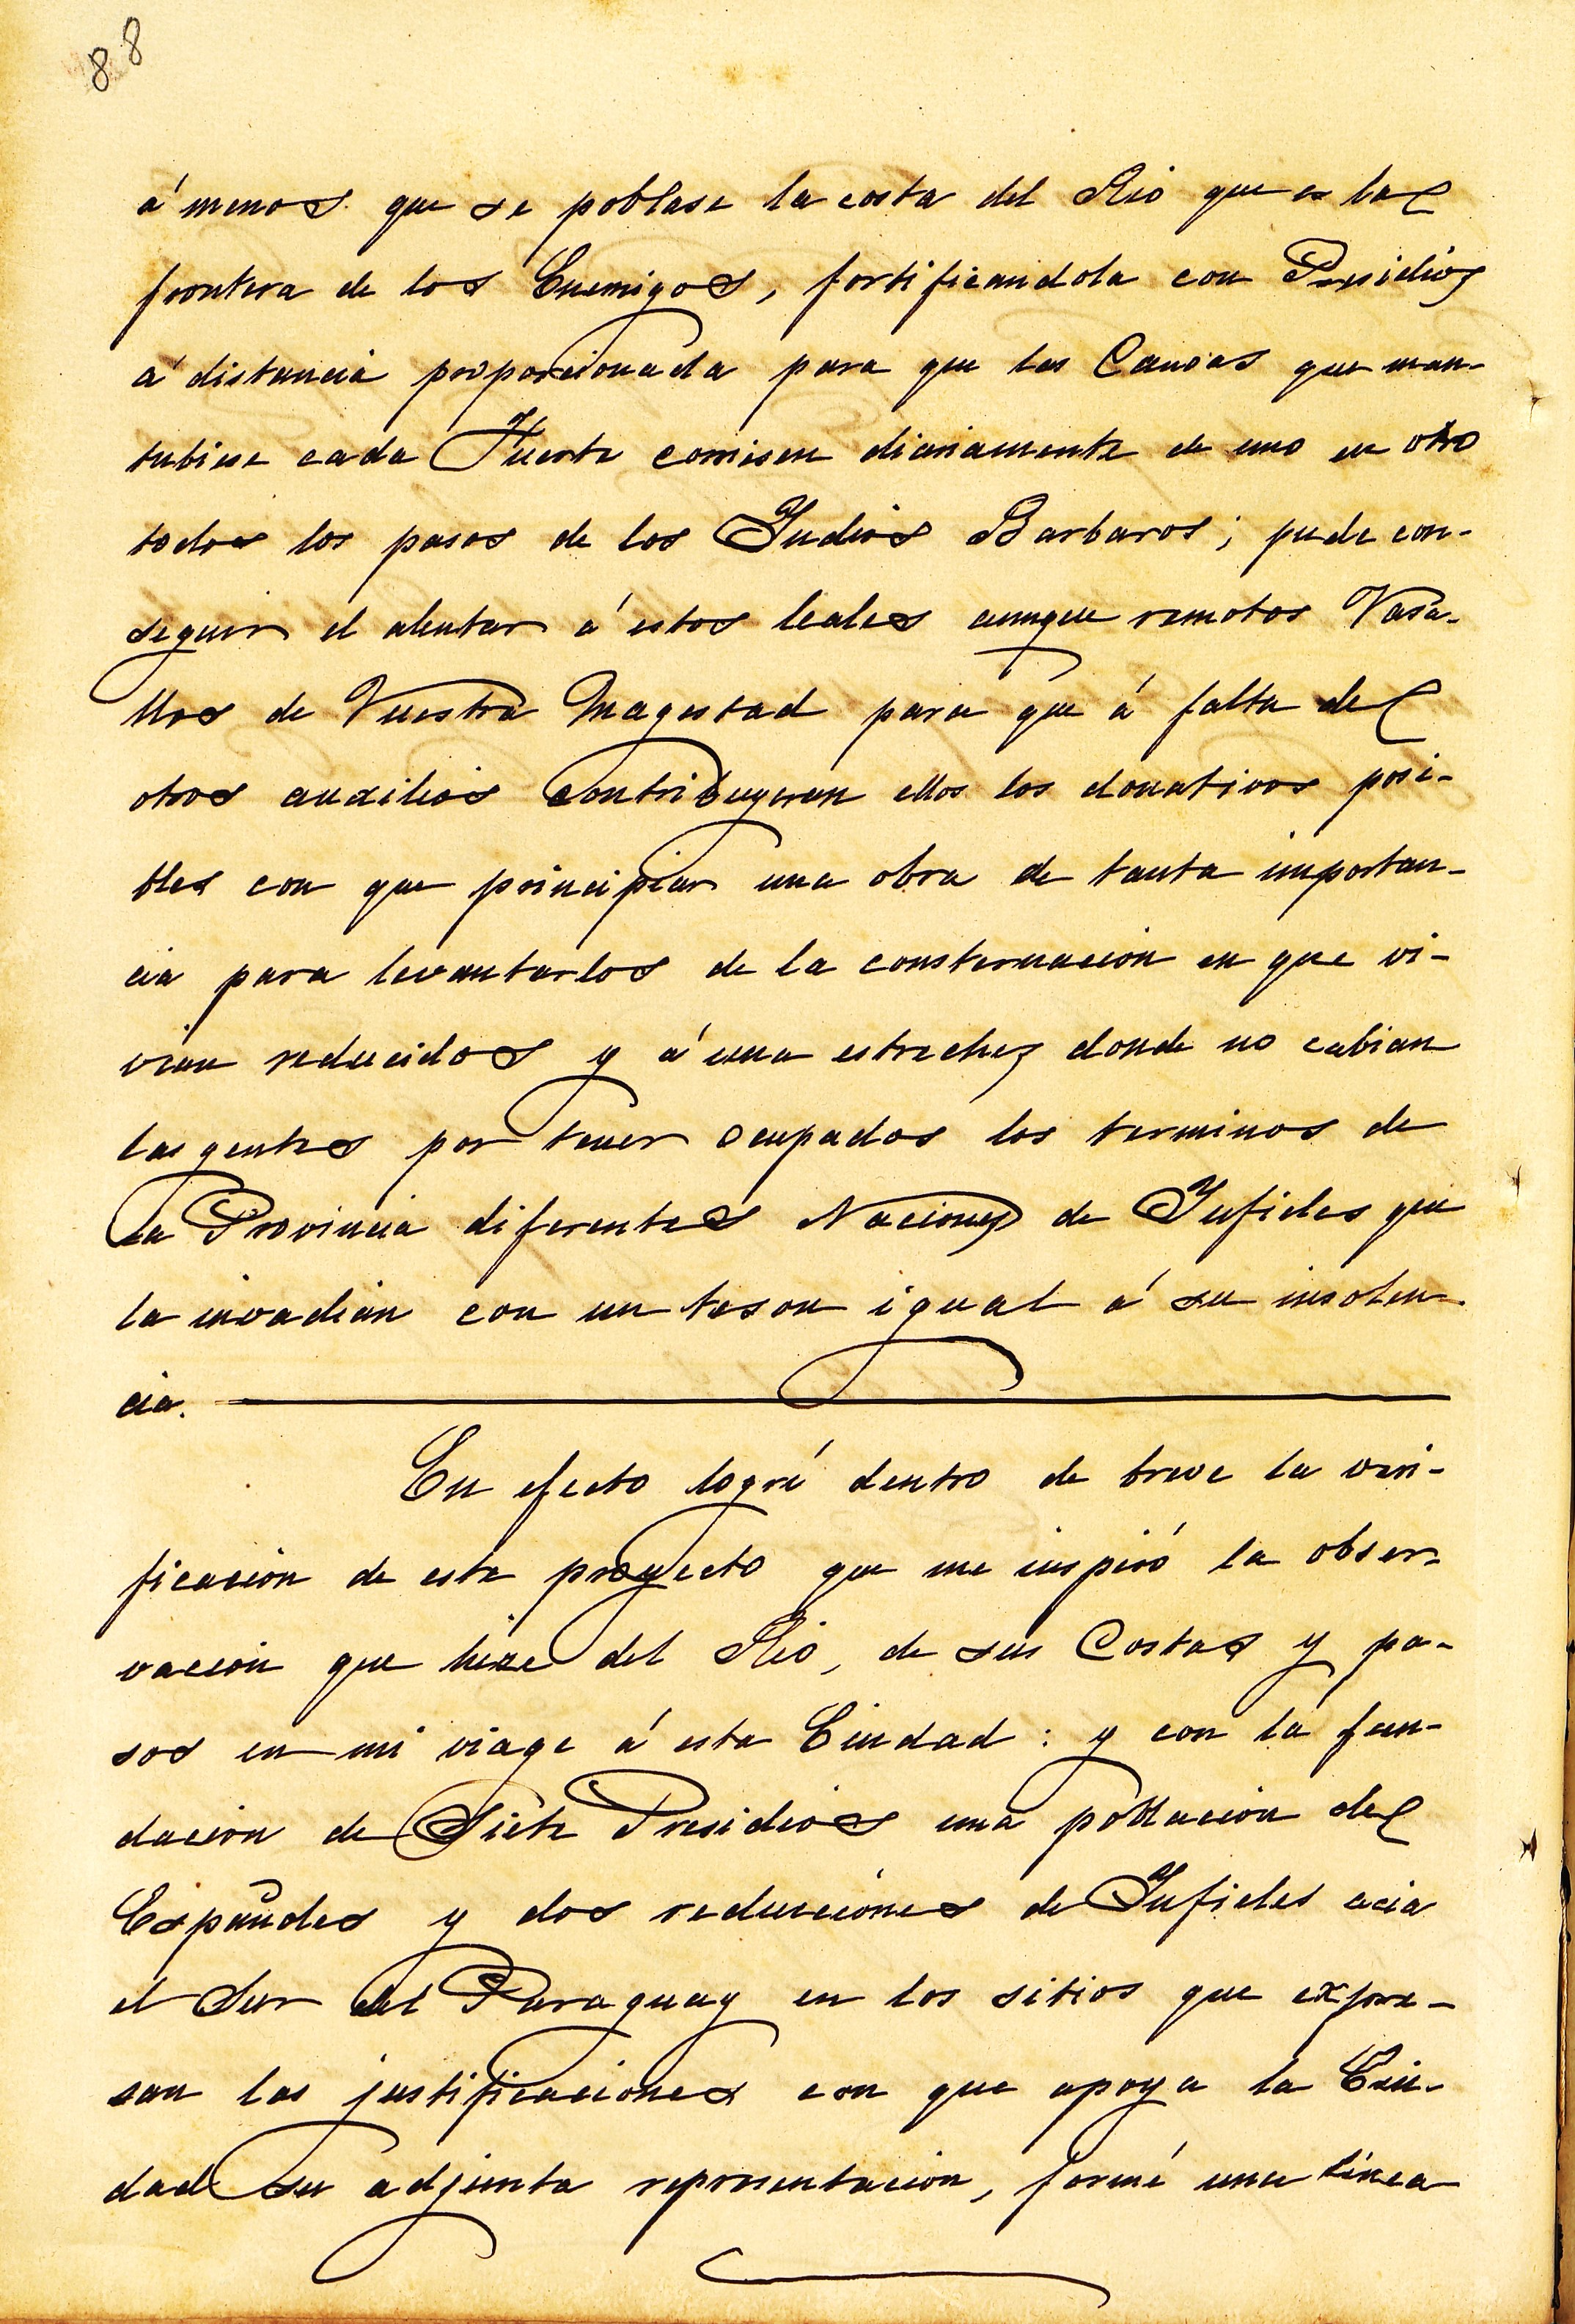 88
á menos que se poblase la costa del Rio que es la
frontera de los Enemigos, fortificandola con Presidios
á distancia proporcionada para que las Canoas que man-
tubiese cada Fuerte corriesen diariamente de uno en otro
todos los pasos de los Yndios Barbaros; pude con-
seguir el alentar á estos leales aunque remotos Vasa-
llos de Vuestra Magestad para que á falta de
otros auxilios contribuyeran ellos los donativos posi-
bles con que principiar una obra de tanta importan-
cia para levantarlos de la consternacion en que vi-
vian reducidos y á una estrechez donde no cabian
las gentes por tener ocupados los terminos de
la Provincia diferentes Naciones de Ynfieles que
la invadian con un teson igual á su insolen-
cia.
En efecto logré dentro de breve la veri-
ficacion de este proyecto que me inspiró la obser-
vacion que hize del Rio, de sus Costas y pa-
sos en mi viage á esta Ciudad: y con la fun-
dacion de Siete Presidios una poblacion de
Españoles y dos reducciones de Ynfieles acia
el Sur del Paraguay en los sitios que expre-
san las justificaciones con que apoya la Ciu-
dad su adjunta representacion, formé una linea